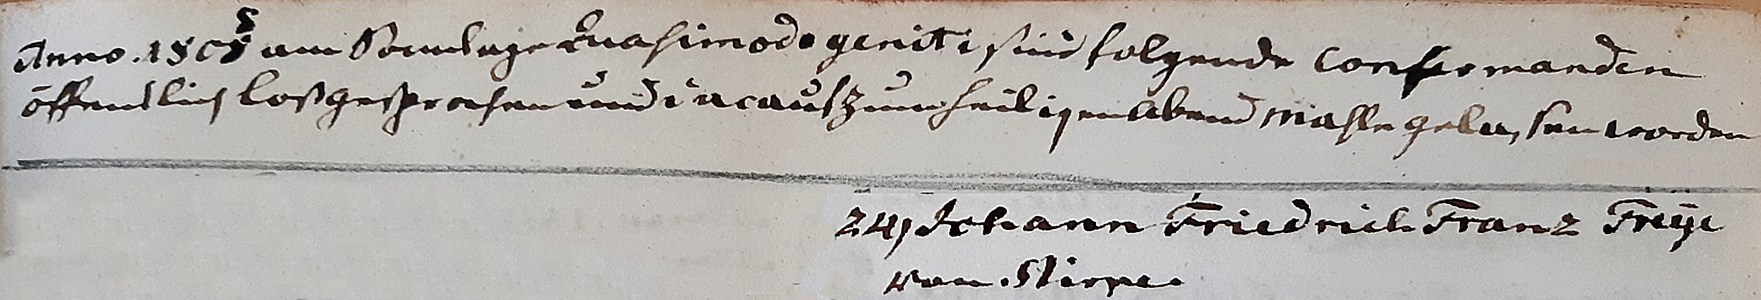 Anno. 1808 am Sonntage Quasimodogeniti sind folgende Confirmanden
öffentlich losgesprochen und darauf zum heiligen Abend Mahle gelassen worden
24, Johann Friedrich Franz Freÿe
von Stirpe.